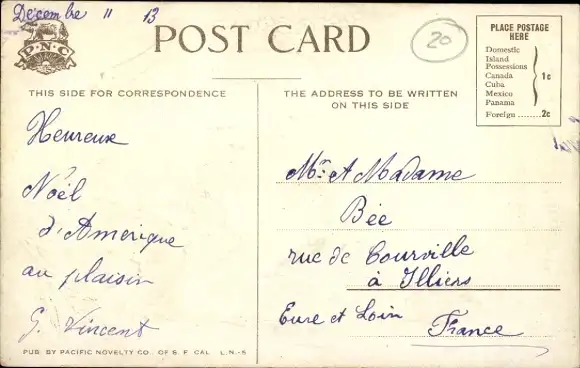 Décembre 11 13
P.N.C
POST CARD
20
PLACE POSTAGE
HERE
Domestic
Island
Possessions
Canada
Cuba
Mexico
Panama
1c
Foreign ........2c
THIS SIDE FOR CORRESPONDENCE
Heureux
Noël
d'Amerique
au plaisir
G. Vincent
THE ADDRESS TO BE WRITTEN
ON THIS SIDE
Mr. et Madame
Bée
rue de Courville
à Illiers
Eure et Loin
France
PUB BY PACIFIC NOVELTY CO. OF S. F. CAL. L.N.-5